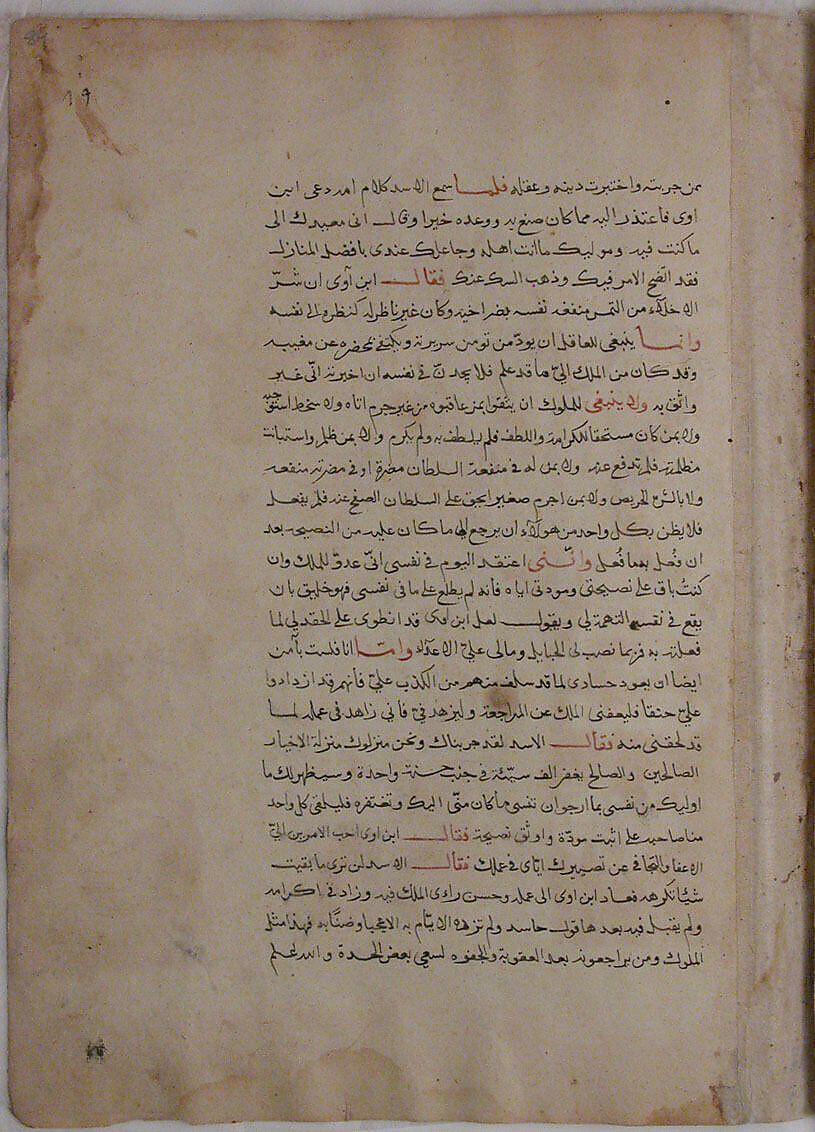 بمن جربته واختبرت دينه وعقله فلما سمع الاسد كلام امه دعى ابن
اوى فاعتذر اليه مما كان صنع به ووعده خيرا وقال انى معيدك الى
ما كنت فيه وموليك ما انت اهله وجاعلك عندى بافضل المنازل
فقد اتضح الامر فيك وذهب الشك عنك فقال ابن آوى ان شرّ
الاخلاء من التمس منفعة نفسه بضر اخيه وكان غير ناظر له كنظره الى نفسه
وانما ينبغى للعاقل ان يودّ من تومن سريرته ويكتفى بمحضره عن مغيبه
وقد كان من الملك اليّ ما قد علم فلا يجدنّ في نفسه ان اخبرته انّى غير
واثق به ولا ينبغى للملوك ان يثقوا بمن عاقبوه من غير جرم اتاه ولا سخط استوجبه
ولا بمن كان مستحقا للكرامة واللطف فلم يلطف به ولم يكرم ولا بمن ظلم واستبانت
مظلمته فلم تدفع عنه ولا بمن له في منفعة السلطان مضرة او في مضرته منفعة
ولا بالشره الحريص ولا بمن اجرم صغيرا يحق على السلطان الصفح عنه فلم يفعل
فلا يظن بكل واحد من هولاء ان يرجع الى ما كان عليه من النصيحة بعد
ان فُعل به ما فُعل وانّنى اعتقد اليوم في نفسى انّى عدوّ للملك وان
كنتُ باق على نصيحتى ومودتى اياه فانه لم يطلع على ما فى نفسى فهو خليق بان
يقع في نفسه التهمة لي ويقول لعل ابن اوى قد انطوى على الحقد لي لما
فعلته به فربما نصب لى الحبايل ومالى عليّ الاعداء وامّا انا فلست بآمن
ايضا ان يعود حسادى لما قد سلف منهم من الكذب عليّ فانهم قد ازدادوا
عليّ حنقا فليعفنى الملك عن المراجعة وليزهد فيّ فاني زاهد فى عمله لما
قد لحقنى منه فقال الاسد لقد جربناك ونحن منزلوك منزلة الاخيار
الصالحين والصالح يغفر الف سيّئة في جنب حسنة واحدة وسيظهر لك ما
اوليك من نفسى بما ارجو ان نفسى ما كان منّى اليك وتغتفره فليلقى كل واحد
منا صاحبه على اثبت مودّة واوثق نصيحة فقال ابن اوى احب الامرين اليّ
الاعفا والتجافى عن تصييرك ايّاى فى عملك فقال الاسد لن ترى ما بقيت
شيئا تكرهه فعاد ابن اوى الى عمله وحسن راءى الملك فيه وزاد فى اكرامه
ولم يقبل فيه بعدها قول حاسد ولم تزده الايّام به الا عجبا وضنّا به فهذا مثل
الملوك ومن يراجعونه بعد العقوبة والجفوه لسعى بعض الحسدة والله اعلم